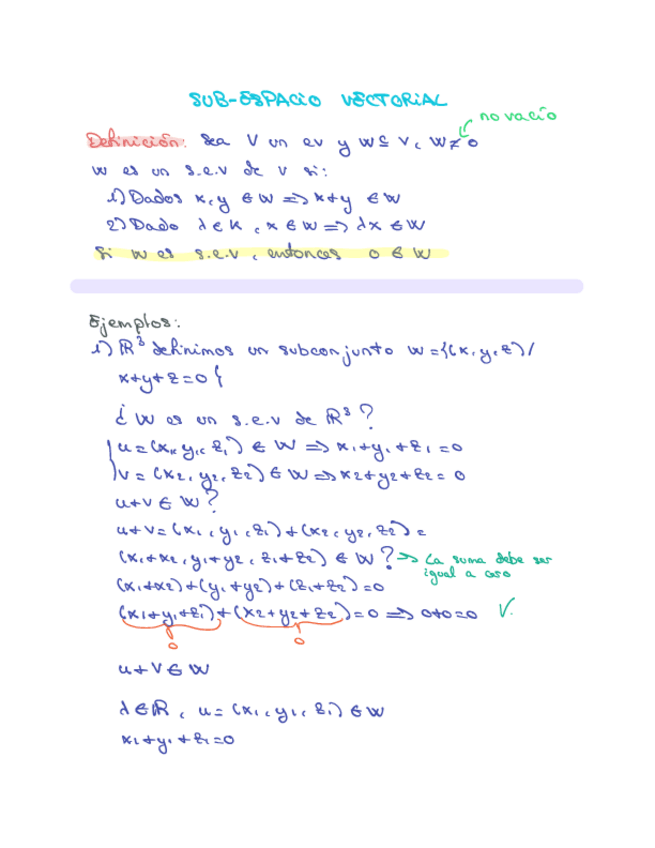 SUB-ESPACIO VECTORIAL
no vacío
Definición: Sea V un ev y W⊆V, W≠0
W es un s.e.v de V si:
1) Dados x,y ∈ W => x+y ∈ W
2) Dado λ ∈ K, x ∈ W => λx ∈ W
Si W es s.e.v, entonces 0 ∈ W
Ejemplos:
1) R³ definimos un subconjunto W={(x,y,z)/
x+y+z=0}
¿W es un s.e.v de R³?
u=(x₁,y₁,z₁) ∈ W => x₁+y₁+z₁=0
v=(x₂,y₂,z₂) ∈ W => x₂+y₂+z₂=0
u+v ∈ W?
u+v=(x₁,y₁,z₁)+(x₂,y₂,z₂)=
(x₁+x₂,y₁+y₂,z₁+z₂) ∈ W? -> La suma debe ser
igual a cero
(x₁+x₂)+(y₁+y₂)+(z₁+z₂)=0
(x₁+y₁+z₁)+(x₂+y₂+z₂)=0 => 0+0=0 V.
0 0
u+v ∈ W
λ ∈ R, u=(x₁,y₁,z₁) ∈ W
x₁+y₁+z₁=0